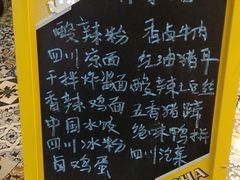 酸辣粉 香卤牛肉
四川凉面 红油猪耳
干拌炸酱面 酸辣土豆丝
香辣鸡面 五香猪蹄
中国水饺 绝味鸭脖
四川冰粉 四川泡菜
卤鸡蛋